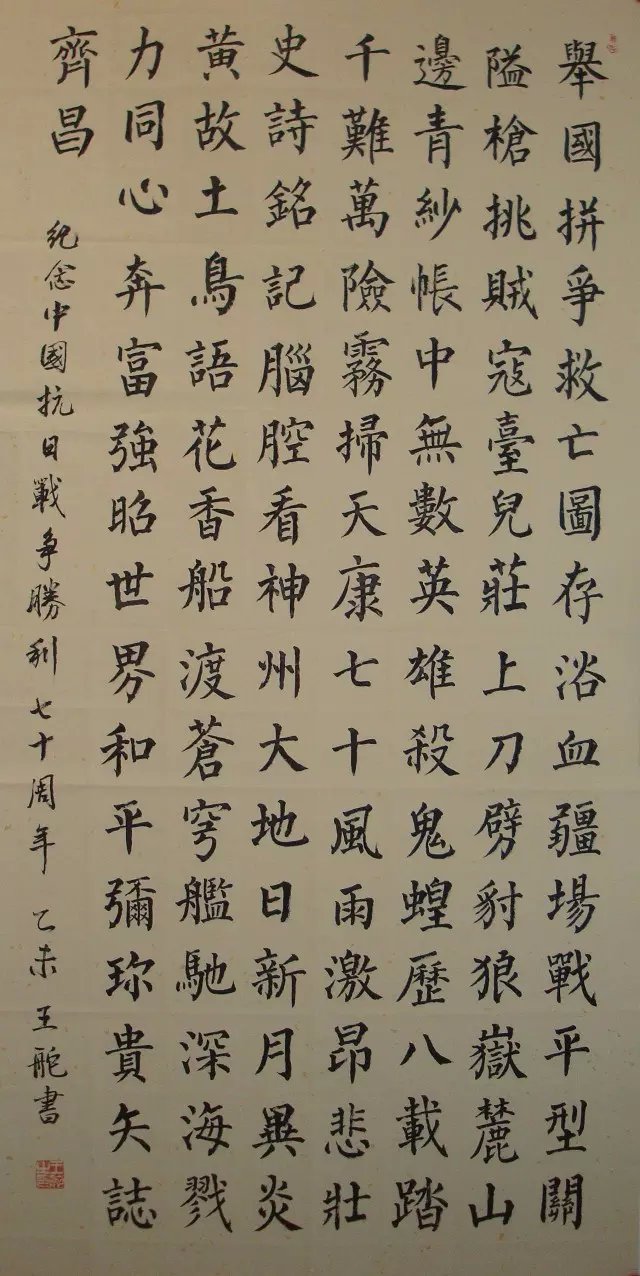 舉國拼爭救亡圖存浴血疆場戰平型關
隘槍挑賊寇臺兒莊上刀劈豺狼嶽麓山
邊青紗帳中無數英雄殺鬼蝗歷八載踏
千難萬險霧掃天康七十風雨激昂悲壯
史詩銘記腦腔看神州大地日新月異炎
黃故土鳥語花香船渡蒼穹艦馳深海戮
力同心奔富強昭世界和平彌珍貴矢誌
齊昌
紀念中國抗日戰爭勝利七十周年 乙未 王舵書